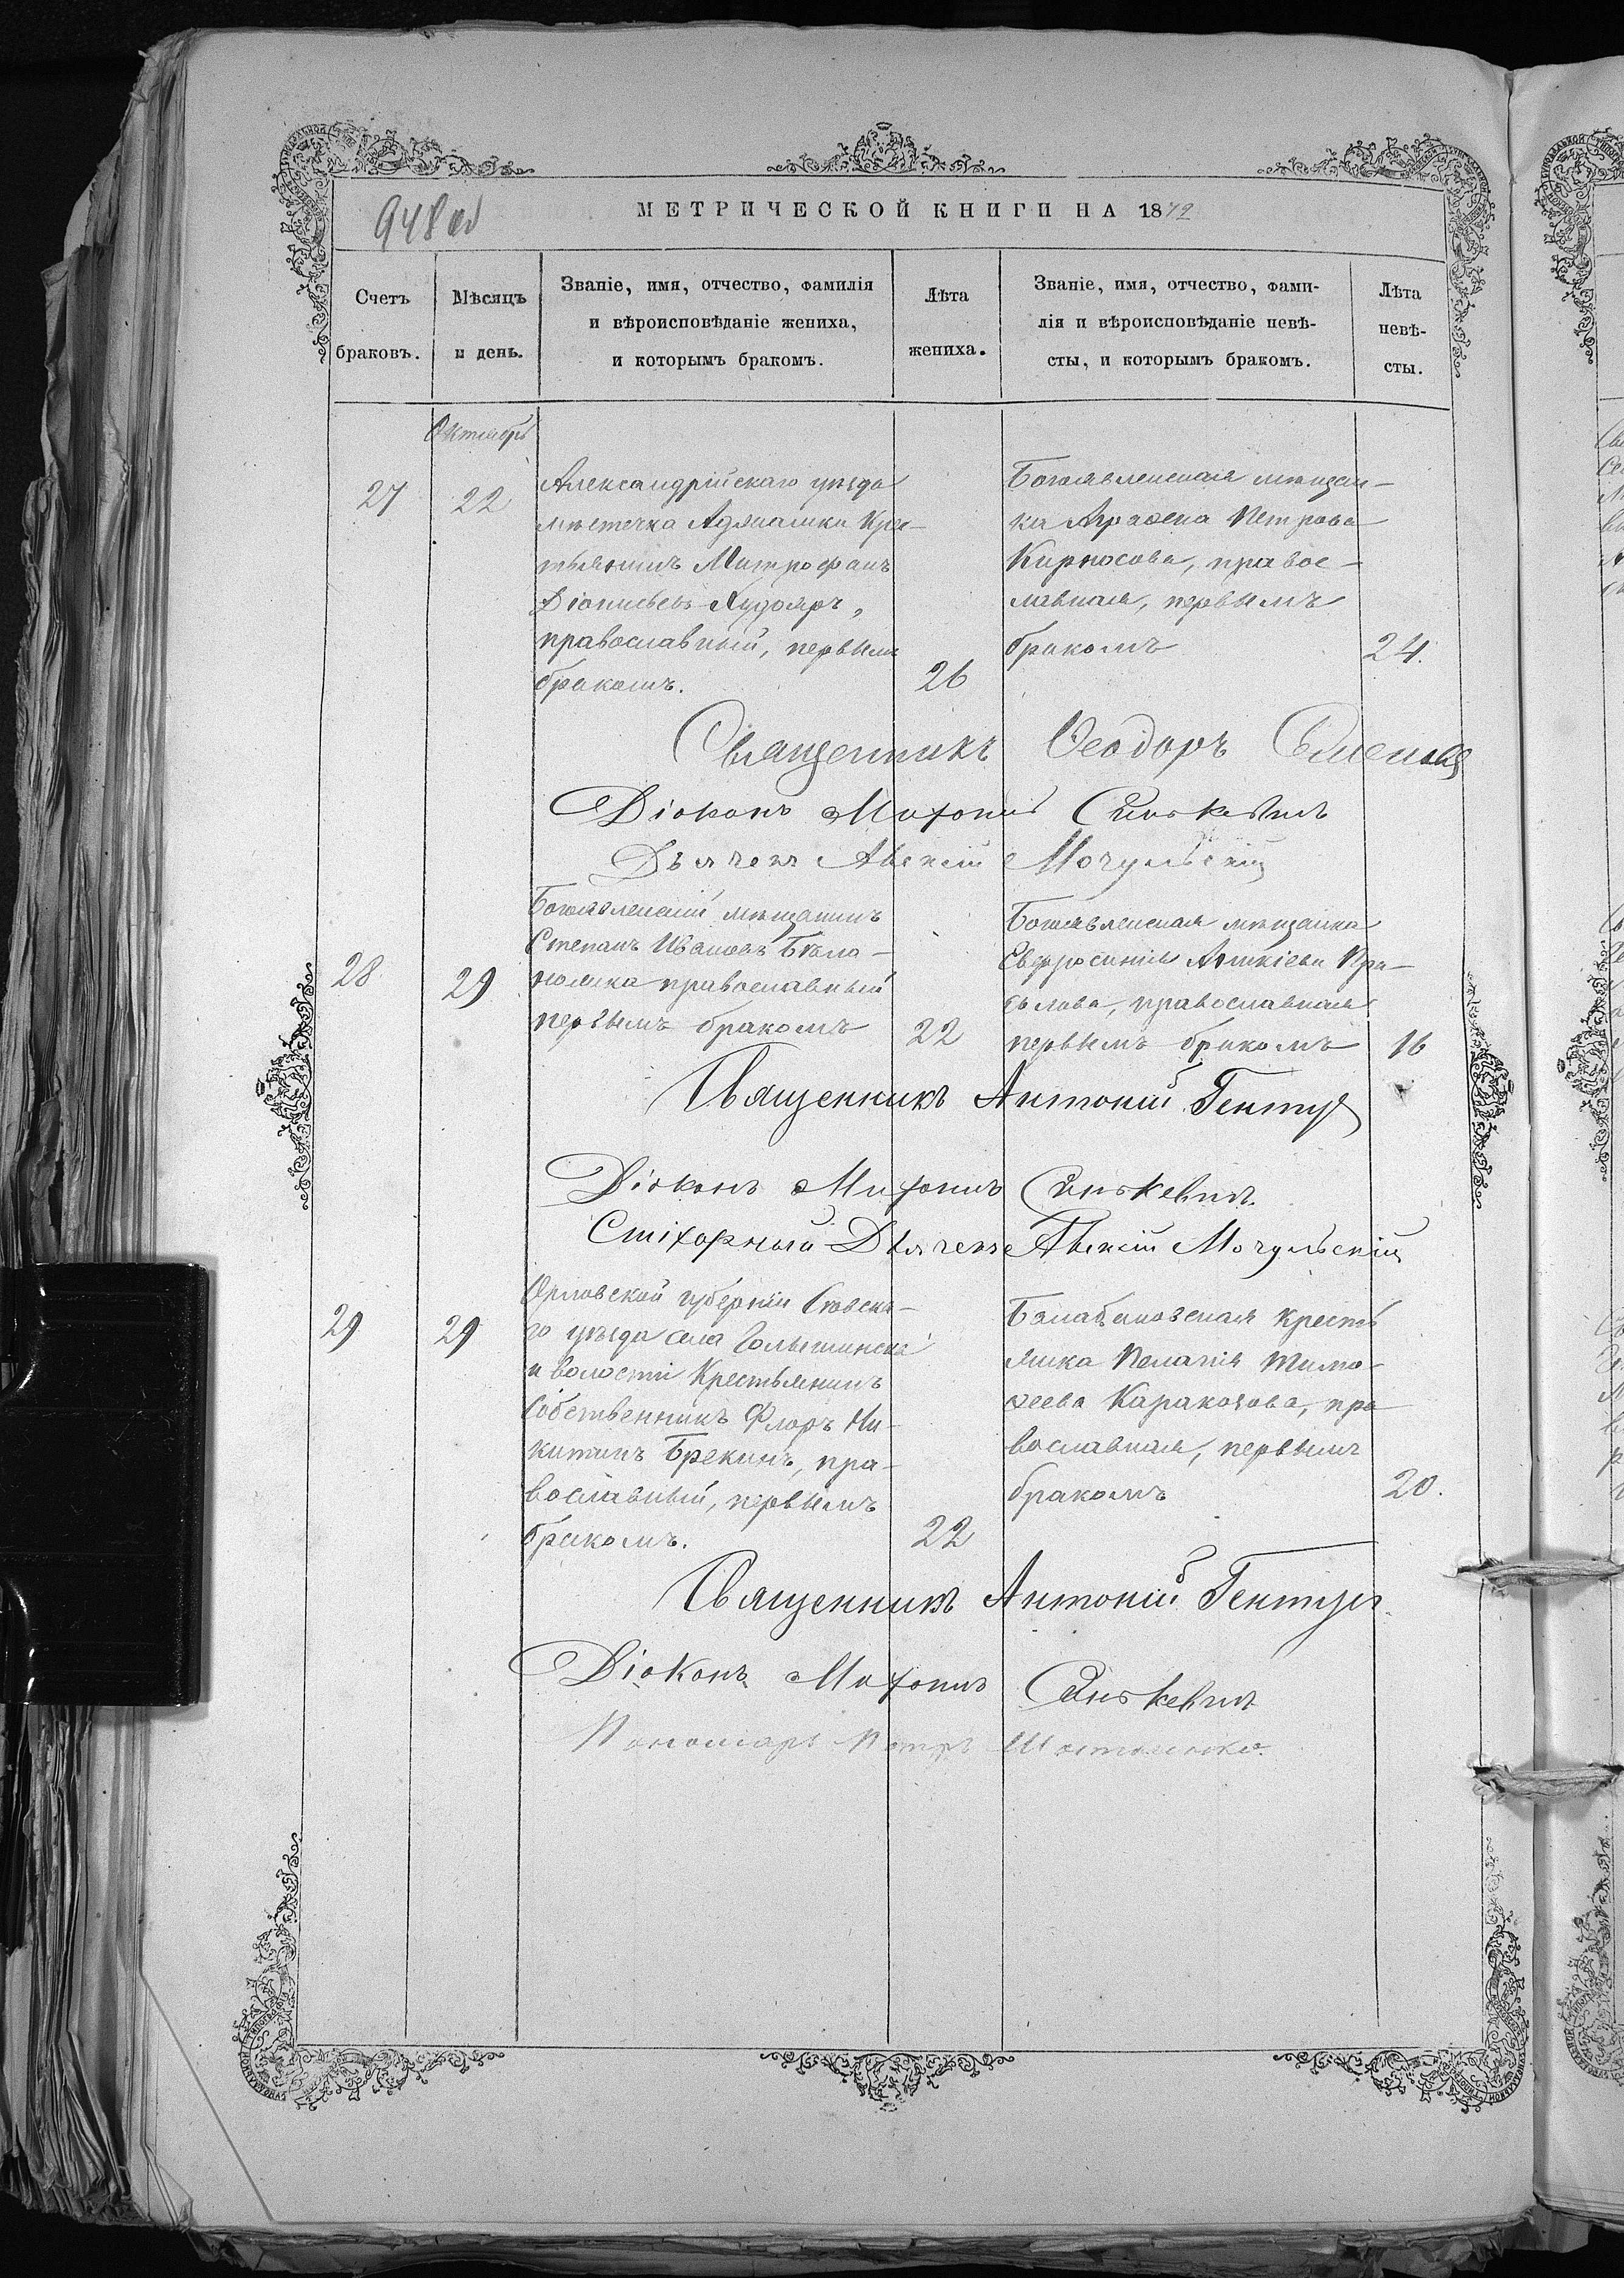 948 об
МЕТРИЧЕСКОЙ КНИГИ НА 1879
Счетъ браковъ.
Мѣсяцъ и день.
Званіе, имя, отчество, фамилія
и вѣроисповѣданіе жениха,
и которымъ бракомъ.
Лѣта жениха.
Званіе, имя, отчество, фами-
лія и вѣроисповѣданіе невѣ-
сты, и которымъ бракомъ.
Лѣта невѣ-
сты.
Октябрь
27
22
Александрійскаго уѣзда
мѣстечка Аджамки Кре-
стьянинъ Митрофанъ
Діонисьевъ Худояръ,
православный, первымъ
бракомъ.
26
Богоявленская мѣщан-
ка Аграфена Петрова
Кирносова, правос-
лавная, первымъ
бракомъ
24.
Священникъ Ѳеодоръ
Діаконъ Синькевичъ
Дьячекъ Мочульскій
28
29
Богоявленскій мѣщанинъ
Степанъ Ивановъ Бѣло-
православный
первымъ бракомъ
22
Богоявленская мѣщанка
Евфросинія
православная
первымъ бракомъ
16
Священникъ Антоній
Діаконъ Синькевичъ
Стихарный Дьячекъ Мочульскій
29
29
Орловской губерніи Сѣвска-
го уѣзда села
и волости Крестьянинъ
Собственникъ Флоръ Ни-
китинъ Брекинъ, пра-
вославный, первымъ
бракомъ.
22
Балабановская кресть
янка Пелагія Тимо-
ѳеева Каракозова, пра
вославная, первымъ
бракомъ
20.
Священникъ Антоній
Діаконъ Синькевичъ
Пономарь Петръ